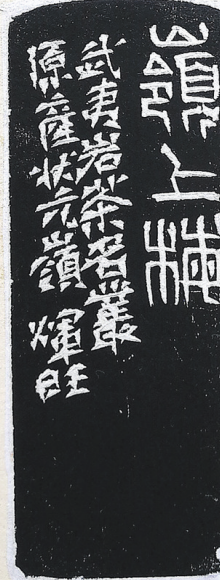 嶺上梅
武夷岩茶名叢
原產狀元嶺 煇旺